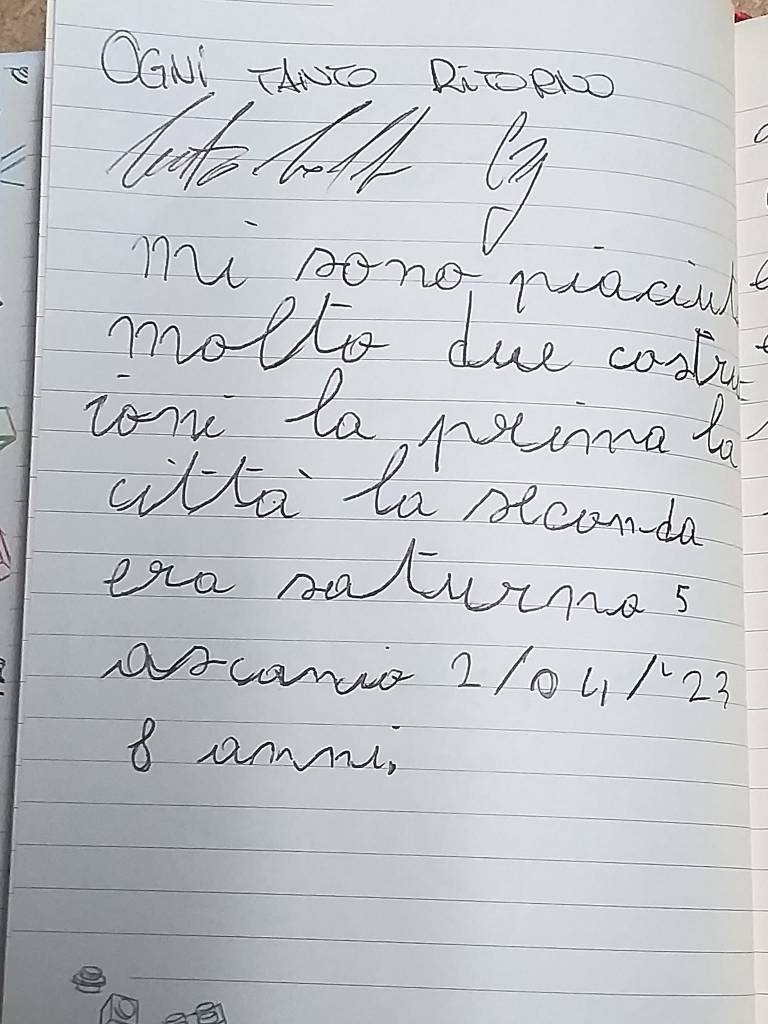 OGNI TANTO RITORNO
mi sono piaciut
molto due costru
ioni la prima la
città la seconda
era saturno 5
ascanio 2/04/'23
8 anni,